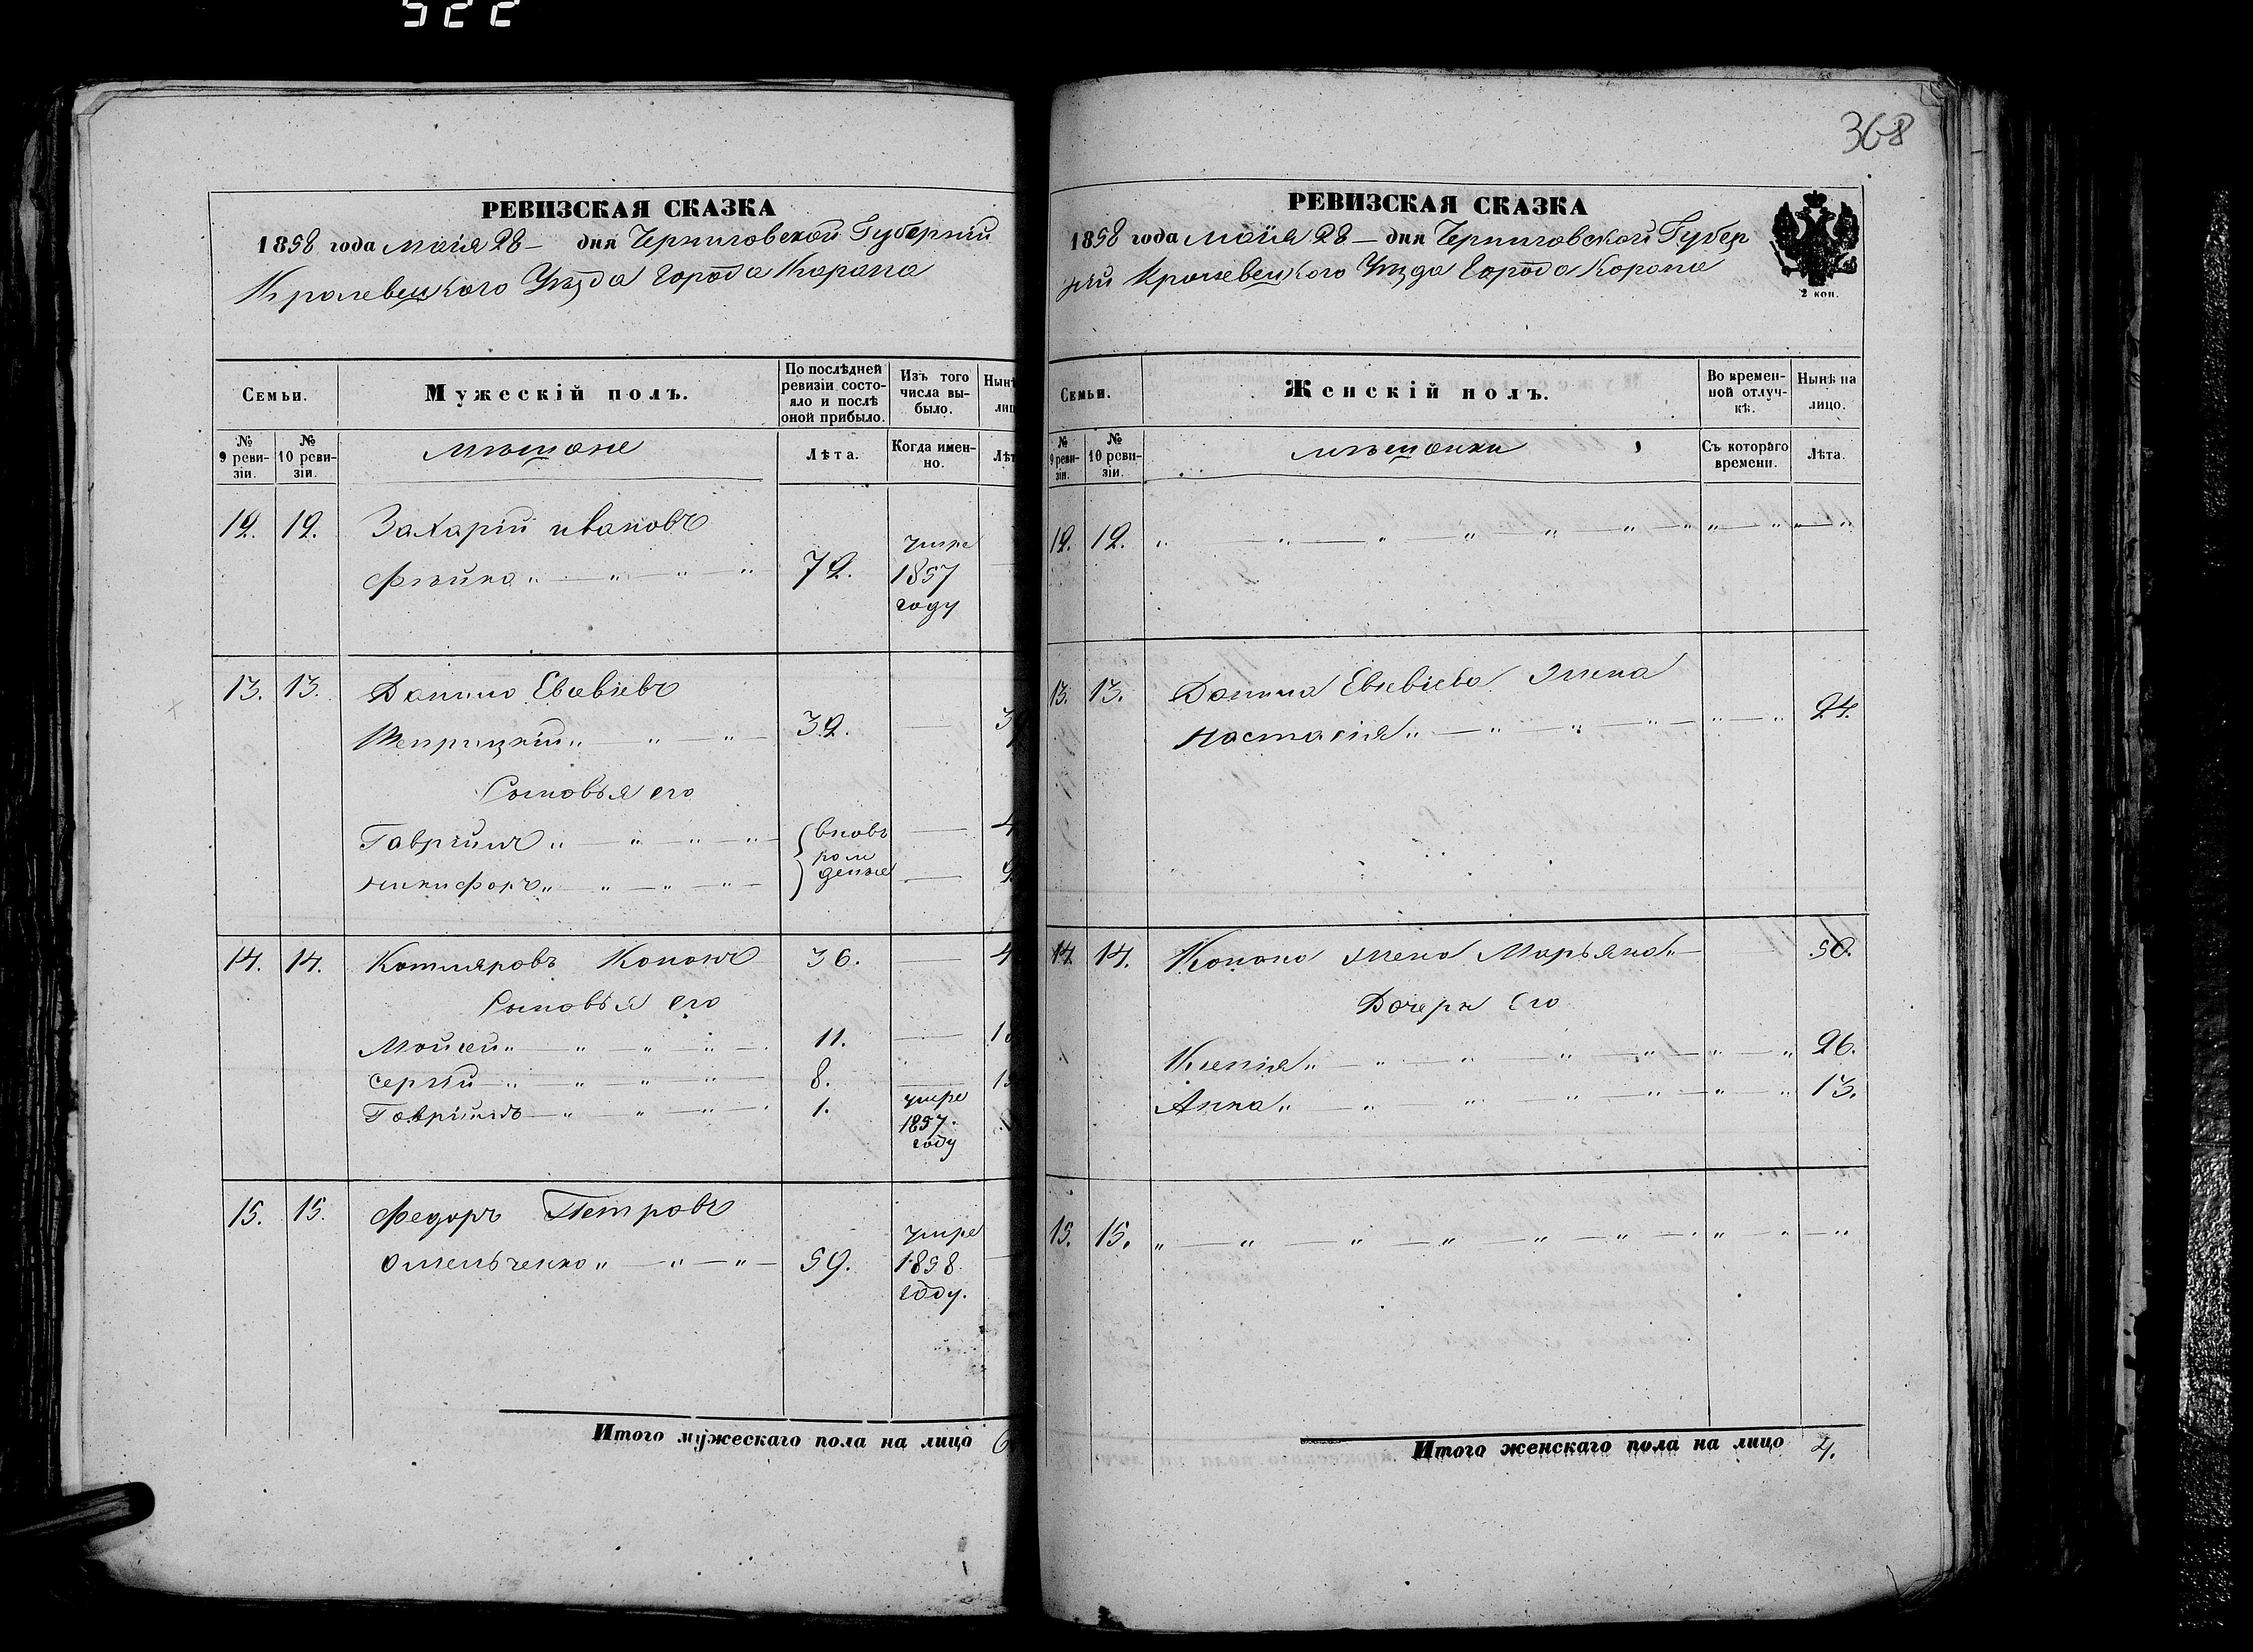 522
РЕВИЗСКАЯ СКАЗКА
1858 года маія 28 — дня Черниговской Губерніи
Кролевецкого Уѣзда Города Коропа
Семьи.
Мужескій полъ.
По послѣдней ревизіи состояло и послѣ оной прибыло.
Изъ того числа выбыло.
№ 9 ревизіи.
№ 10 ревизіи.
мѣщане
Лѣта.
Когда именно.
12. 12. Захарій ивановъ
72. умре 1857 году
13. 13. Данило Евсѣвіевъ
32.
Сыновья его
Гавріилъ вновь рожденые
никифоръ
14. 14. Котляровъ Кононъ 36.
Сыновья его
Мойсей 11.
сергій 8.
Гавріилъ 1. умре 1857. году
15. 15. Федоръ Петровъ
Омельченко 59. умре 1858 году.
Итого мужескаго пола на лицо
368
РЕВИЗСКАЯ СКАЗКА
1858 года маія 28 — дня Черниговской Губер
ніи Кролевецкого Уѣзда Города Коропа
2 коп.
Семьи.
Женскій полъ.
Во временной отлучкѣ.
Нынѣ на лицо.
№ 9 ревизіи.
№ 10 ревизіи.
мѣщанки
Съ котораго времени.
Лѣта.
12. 12.
13. 13. Данила Евсѣвіева жена
Настасія 24.
14. 14. Конона жена Марьяна 50.
Дочери Его
Ксенія 26.
Анна 13.
15. 15.
Итого женскаго пола на лицо 4.